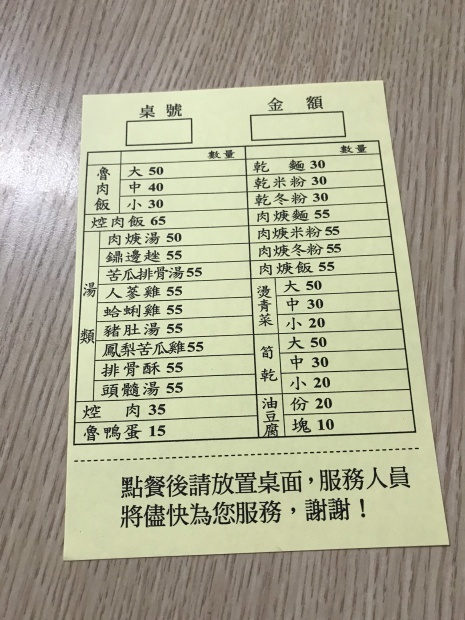 桌號 金額
數量 數量
魯肉飯 大 50
中 40
小 30
焢肉飯 65
湯類 肉焿湯 50
鏽邊趖 55
苦瓜排骨湯 55
人蔘雞 55
蛤蜊雞 55
豬肚湯 55
鳳梨苦瓜雞 55
排骨酥 55
頭髓湯 55
焢肉 35
魯鴨蛋 15
乾麵 30
乾米粉 30
乾冬粉 30
肉焿麵 55
肉焿米粉 55
肉焿冬粉 55
肉焿飯 55
燙青菜 大 50
中 30
小 20
筍乾 大 50
中 30
小 20
油豆腐 份 20
塊 10
點餐後請放置桌面，服務人員
將儘快為您服務，謝謝！